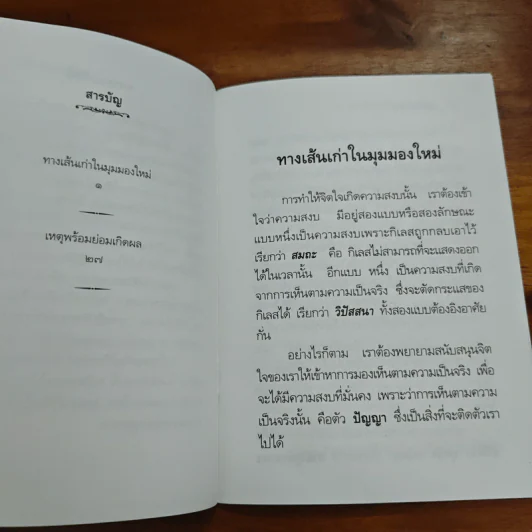 สารบัญ
ทางเส้นเก่าในมุมมองใหม่
๑
เหตุพร้อมย่อมเกิดผล
๒๗
ทางเส้นเก่าในมุมมองใหม่
การทำให้จิตใจเกิดความสงบนั้น เราต้องเข้า
ใจว่าความสงบ มีอยู่สองแบบหรือสองลักษณะ
แบบหนึ่งเป็นความสงบเพราะกิเลสถูกกลบเอาไว้
เรียกว่า สมถะ คือ กิเลสไม่สามารถที่จะแสดงออก
ได้ในเวลานั้น อีกแบบ หนึ่ง เป็นความสงบที่เกิด
จากการเห็นตามความเป็นจริง ซึ่งจะตัดกระแสของ
กิเลสได้ เรียกว่า วิปัสสนา ทั้งสองแบบต้องอิงอาศัย
กัน
อย่างไรก็ตาม เราต้องพยายามสนับสนุนจิต
ใจของเราให้เข้าหาการมองเห็นตามความเป็นจริง เพื่อ
จะได้มีความสงบที่มั่นคง เพราะว่าการเห็นตามความ
เป็นจริงนั้น คือตัว ปัญญา ซึ่งเป็นสิ่งที่จะติดตัวเรา
ไปได้